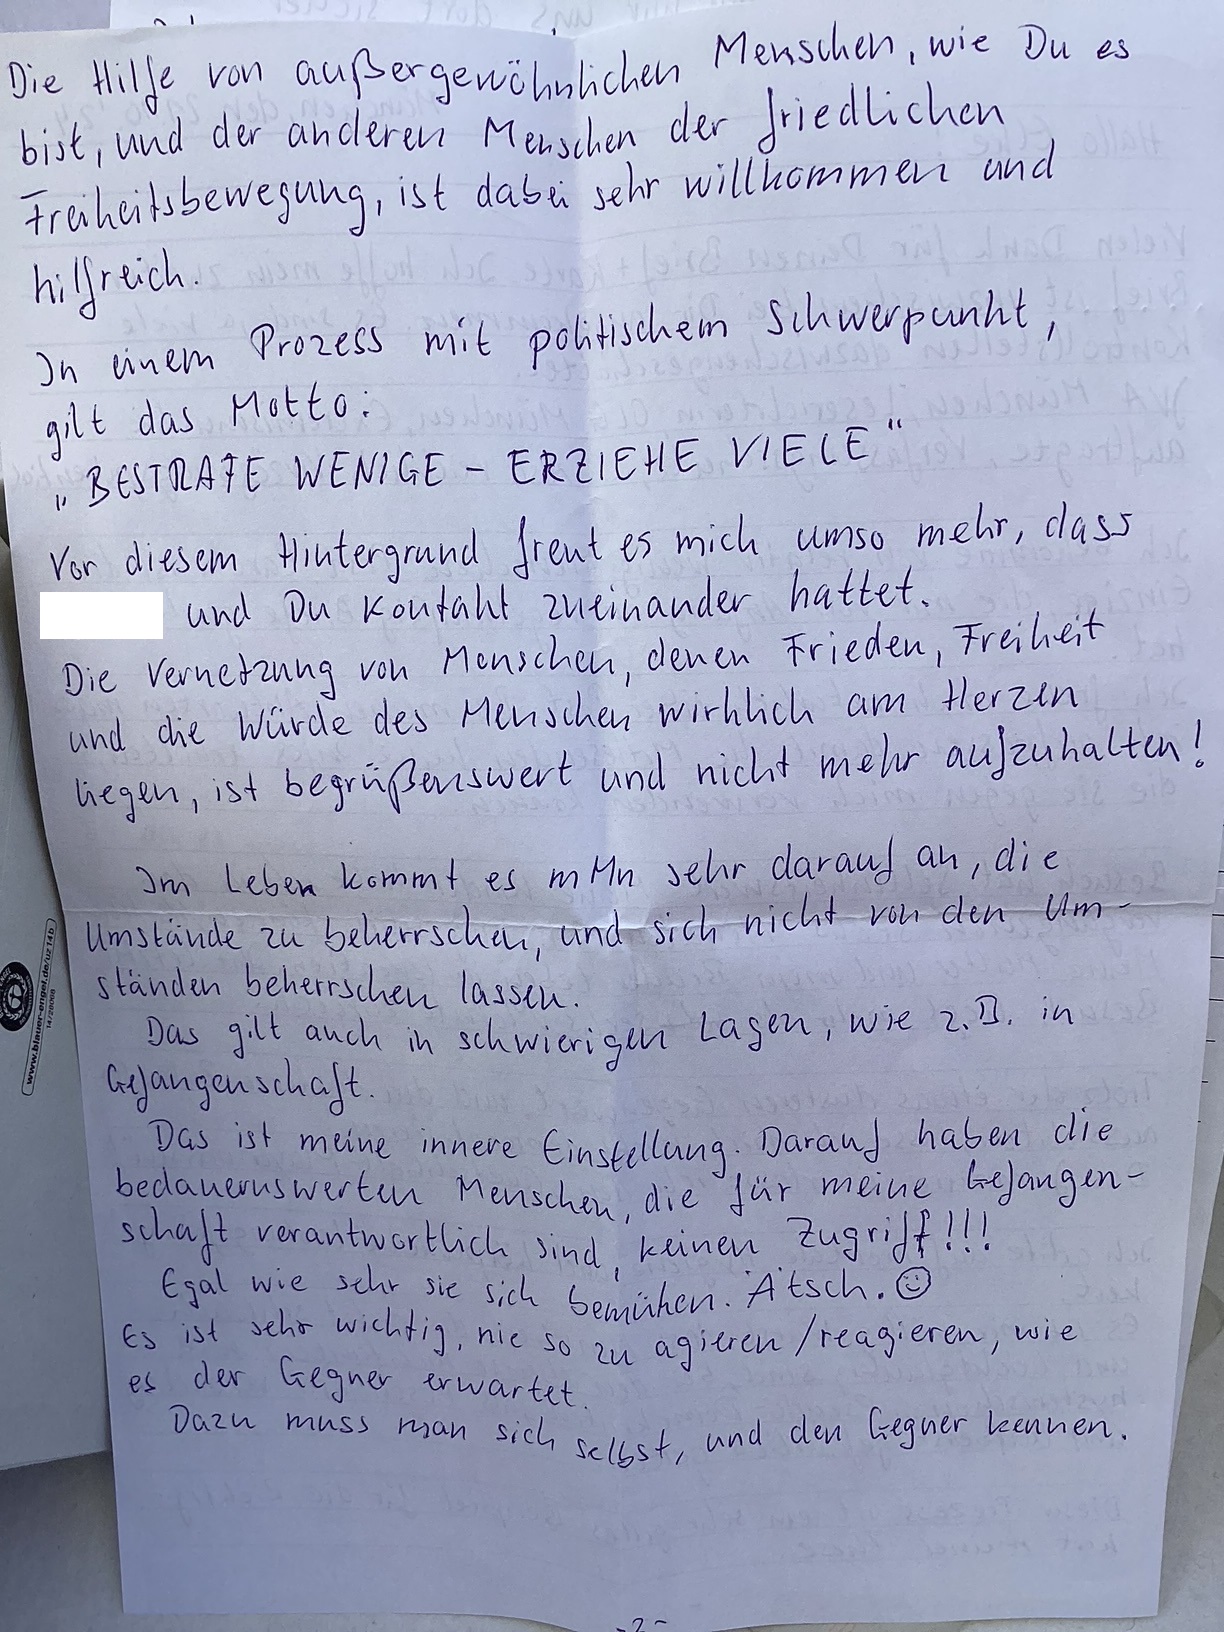 Die Hilfe von außergewöhnlichen Menschen, wie Du es
bist, und der anderen Menschen der friedlichen
Freiheitsbewegung, ist dabei sehr willkommen und
hilfreich.
In einem Prozess mit politischem Schwerpunkt,
gilt das Motto:
„BESTRAFE WENIGE – ERZIEHE VIELE“
Vor diesem Hintergrund freut es mich umso mehr, dass
und Du Kontakt zueinander hattet.
Die Vernetzung von Menschen, denen Frieden, Freiheit
und die Würde des Menschen wirklich am Herzen
liegen, ist begrüßenswert und nicht mehr aufzuhalten!
Im Leben kommt es mMn sehr darauf an, die
Umstände zu beherrschen, und sich nicht von den Um-
ständen beherrschen lassen.
Das gilt auch in schwierigen Lagen, wie z.B. in
Gefangenschaft.
Das ist meine innere Einstellung. Darauf haben die
bedauernswerten Menschen, die für meine Gefangen-
schaft verantwortlich sind, keinen Zugriff!!!
Egal wie sehr sie sich bemühen. Ätsch. ☺
Es ist sehr wichtig, nie so zu agieren/reagieren, wie
es der Gegner erwartet.
Dazu muss man sich selbst, und den Gegner kennen.
-2-
www.blauer-engel.de/uz14b